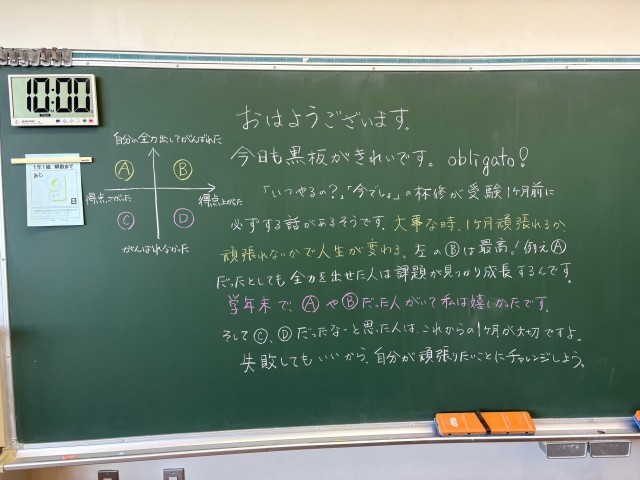 10:00
おはようございます。
自分の全力出してがんばれた
今日も黒板がきれいです。obligato!
Ⓐ Ⓑ
1年1組 解散まで
あと
9
日
「いつやるの?」「今でしょ」の林修が受験1ヶ月前に
得点さがった 得点上がった
必ずする話があるそうです。大事な時、1ヶ月頑張れるか、
Ⓒ Ⓓ
頑張れないかで人生が変わる。左のⒷは最高!例えⒶ
がんばれなかった
だったとしても全力を出せた人は課題が見つかり成長するんです。
学年末で、ⒶやⒷだった人がいて私は嬉しかったです。
そしてⒸ、Ⓓだったなーと思った人は、これからの1ヶ月が大切ですよ。
失敗してもいいから、自分が頑張りたいことにチャレンジしよう。